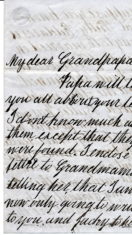 My dear Grandpapa
Papa will t
you all about your
I don't know much
them except that the
now found. I enclose
letter to Grandmama
telling her, that I am
now only going to wri
to you, and